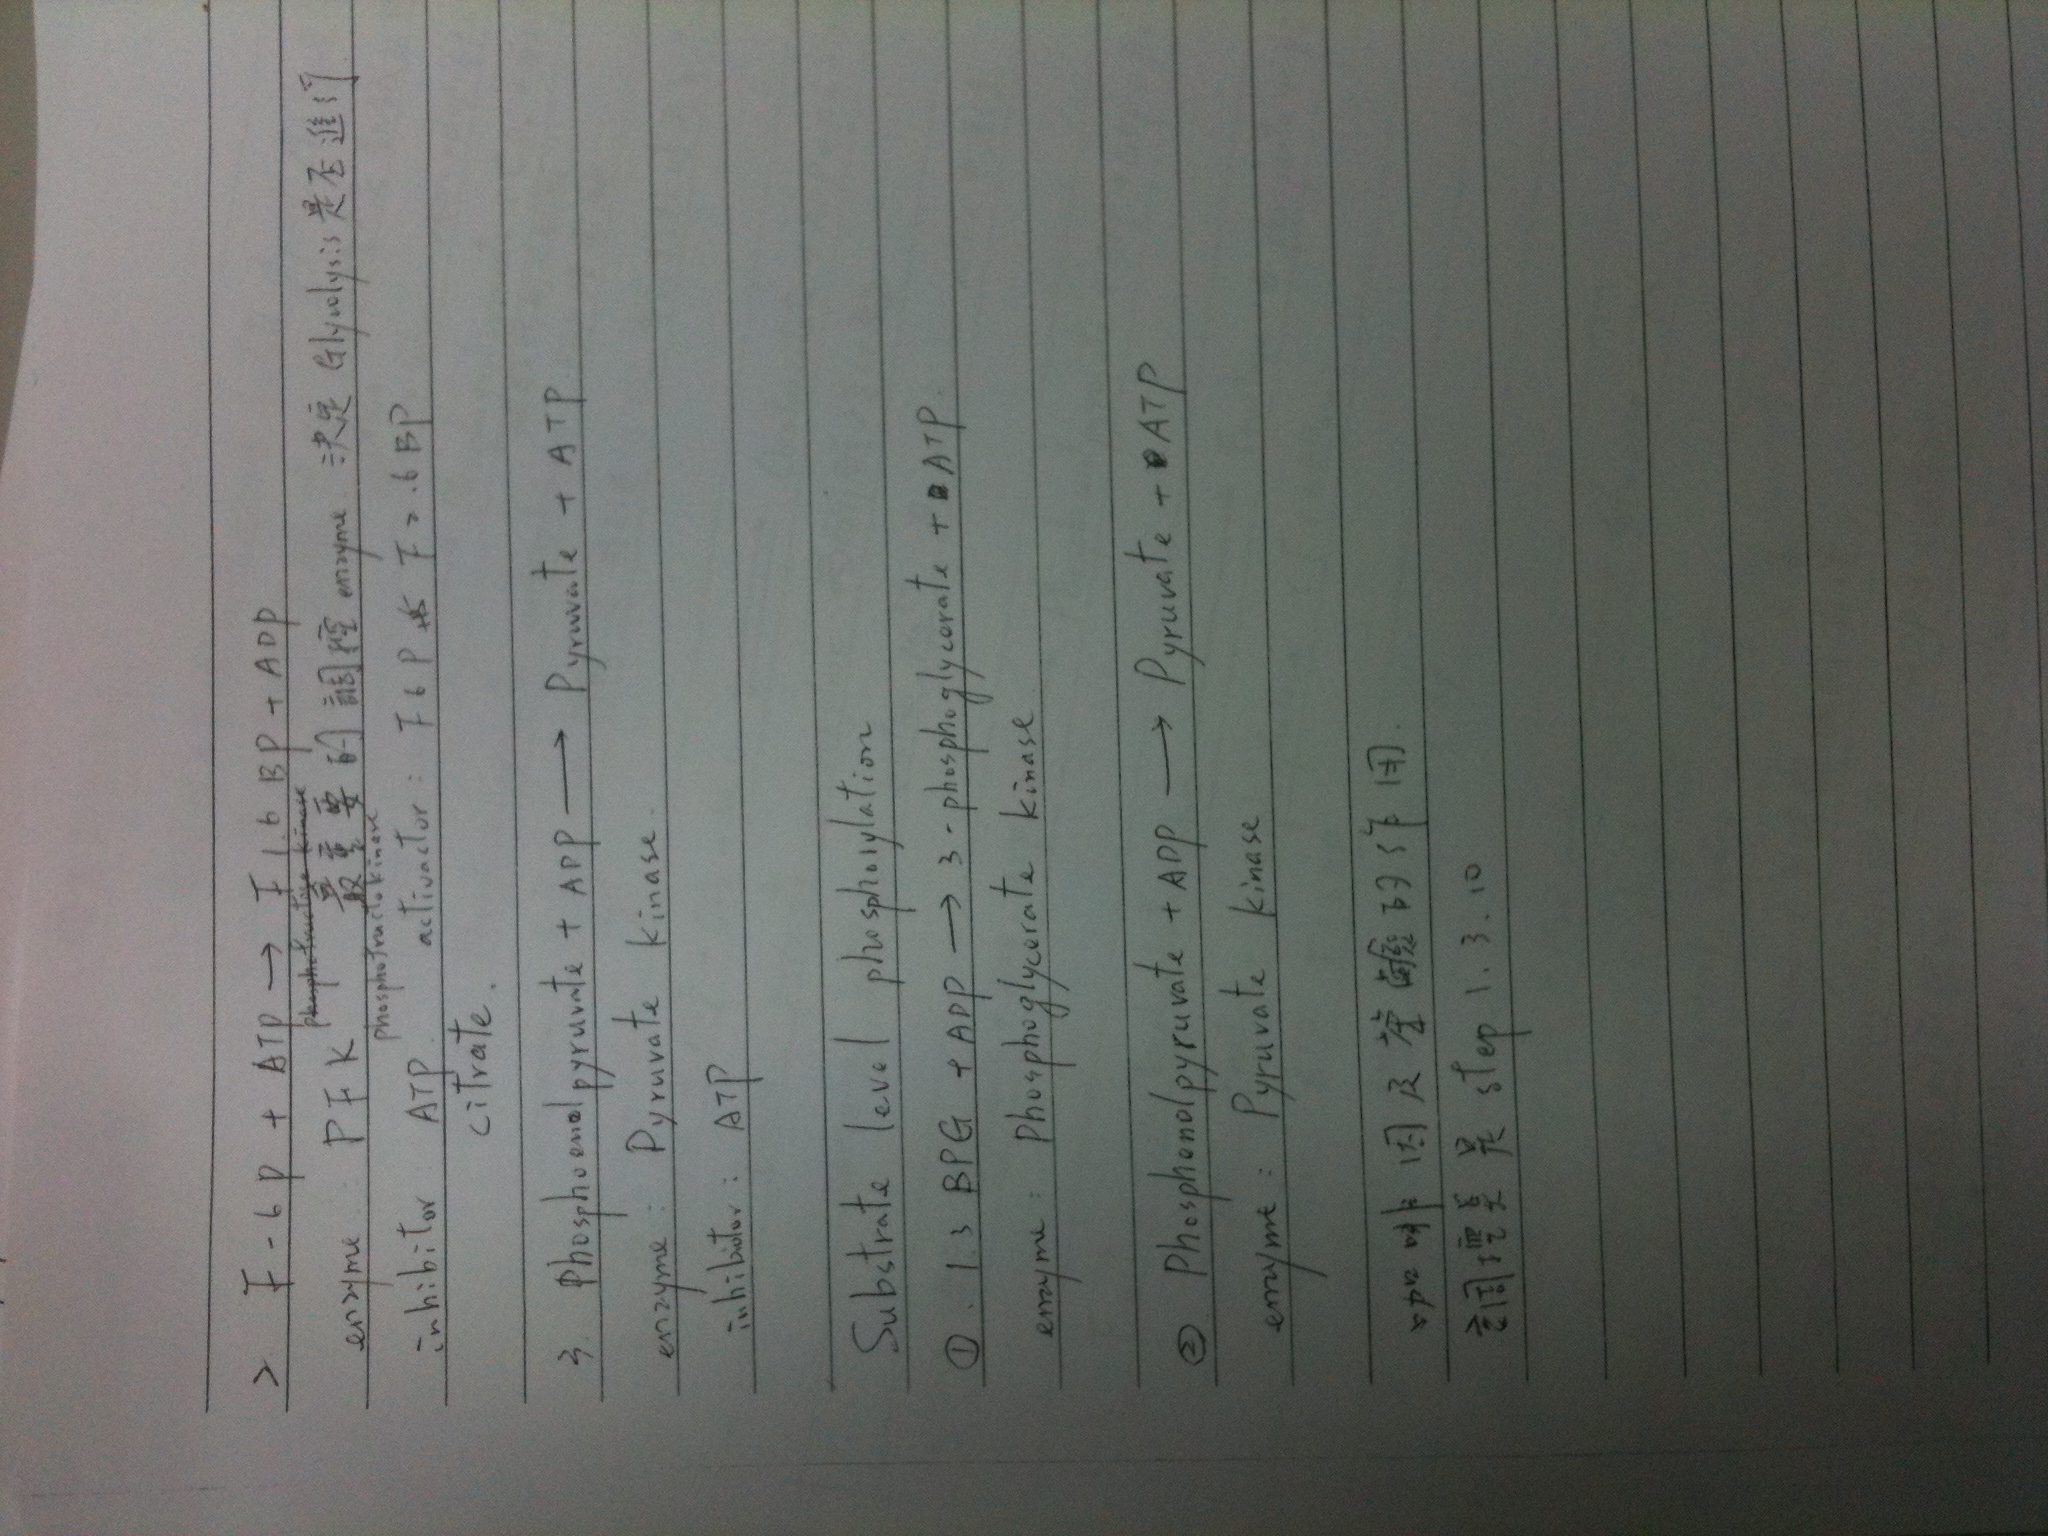 2 F-6P + ATP → F1.6BP + ADP
Phosphofructose kinase
enzyme : PFK 最重要的調控 enzyme 決定 Glycolysis 是否進行
Phosphofructokinase
inhibitor ATP activactor : F6P F2.6BP
citrate.
3 Phosphoenolpyruvate + ADP → Pyruvate + ATP
enzyme : Pyruvate kinase.
inhibitor : ATP
Substrate level phosphorylation
① 1.3 BPG + ADP → 3-phosphoglycerate + ATP.
enzyme : Phosphoglycerate kinase
② Phosphonolpyruvate + ADP → Pyruvate + ATP
enzyme : Pyruvate kinase
調控點是 step 1. 3. 10